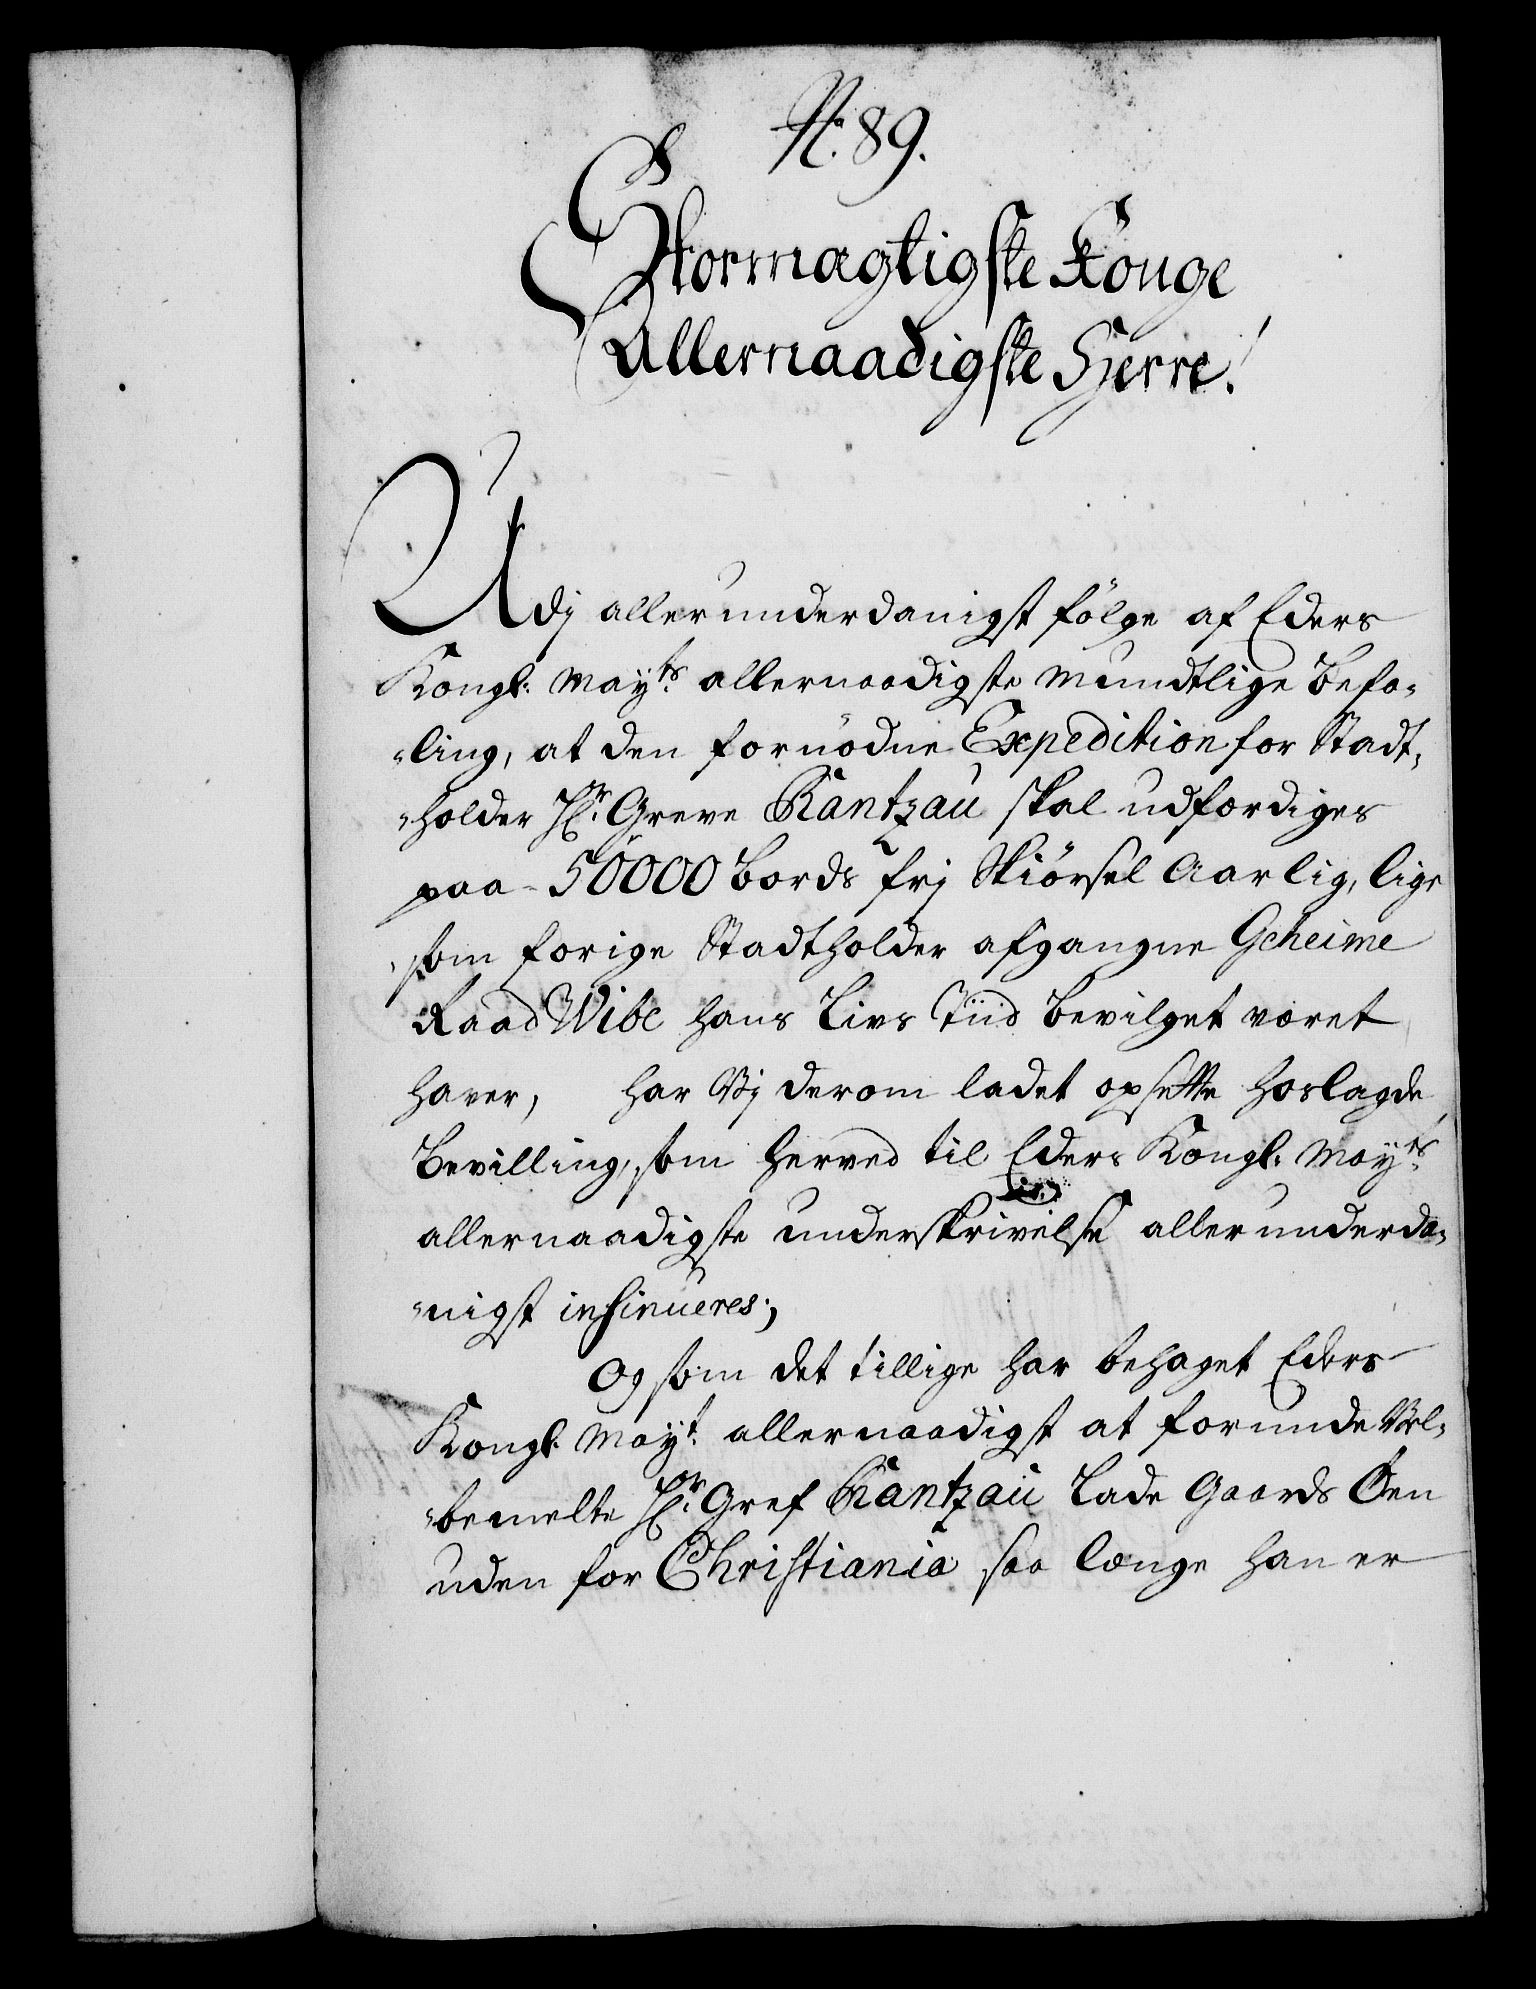 N: 89.
Stormægtigste Konge
Allernaadigste Herre!
Udj allerunderdanigst følge af Eders
Kongl: May:ts allernaadigste mundtlige Befa-
ling, at den fornødne Expedition for Stadt-
holder Hr. Greve Rantzau skal udfærdiges
paa 50000 Bords frj Skiørsel Aarlig, lige
som forige Stadtholder afgangne Geheime
Raad Wibe hans Livs Tiid Bevilget været
haver, har Vj derom ladet opsette hoslagde
Bevilling, som herved til Eders Kongl: May:ts
allernaadigste underskrivelse allerunderda-
nigst insinueres;
Og som det tillige har behaget Eders
Kongl: May:t allernaadigst at forunde Vel-
bemelte Hr. Gref Rantzau Lade Gaards Øen
uden for Christiania saa længe han er